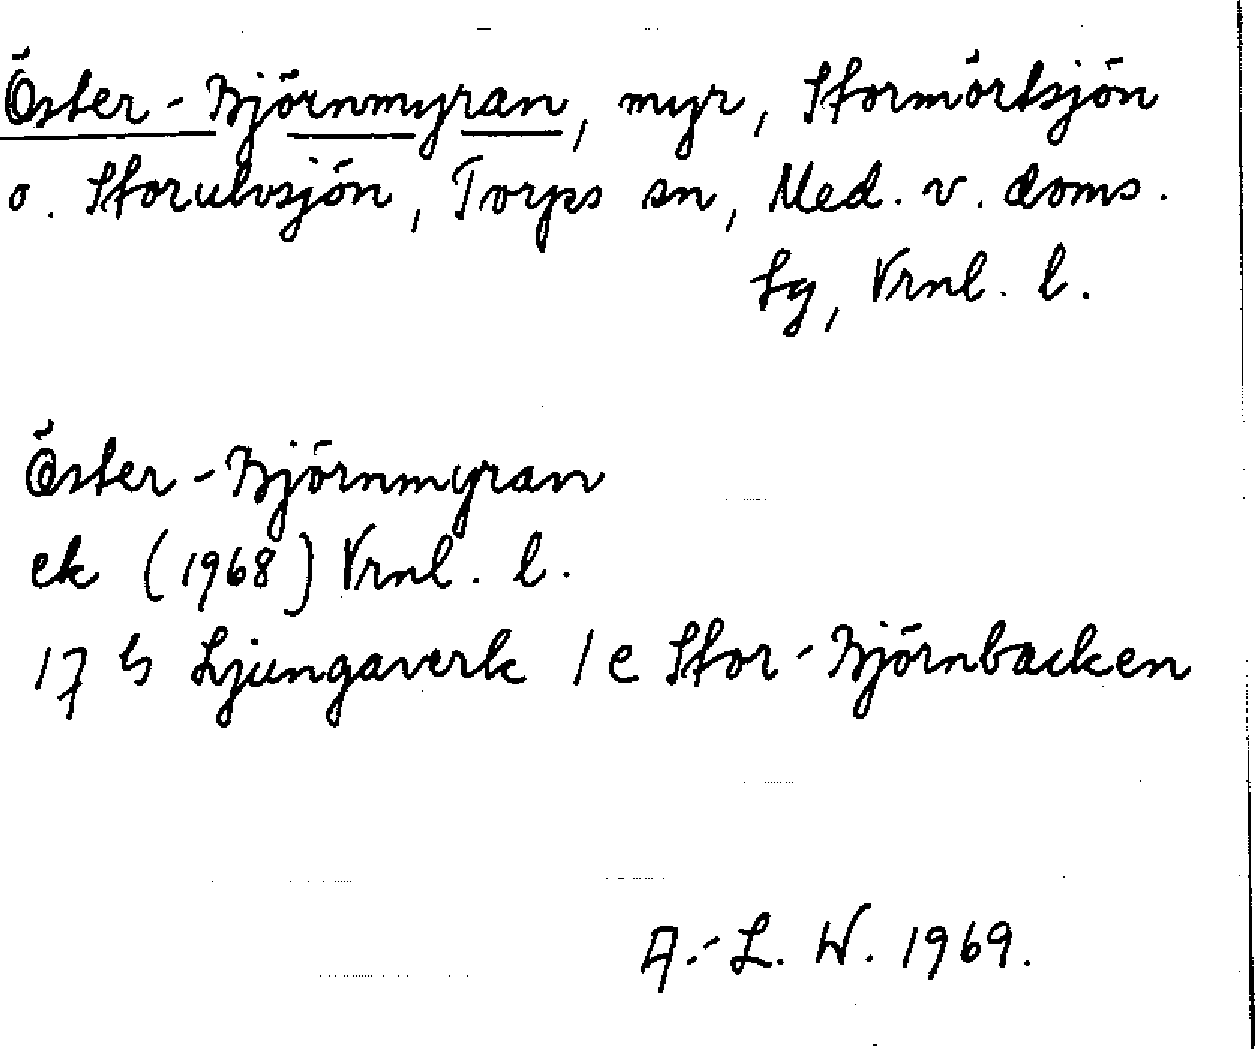 Öster-Björnmyran, myr, Stormörtsjön
o. Storulvsjön, Torps sn, Med. v. doms.
sg, Vrnl. l.
Öster-Björnmyran
ek (1968) Vrnl. l.
17 G Ljungaverk 1 e Stor-Björnbacken
A.-L. W. 1969.